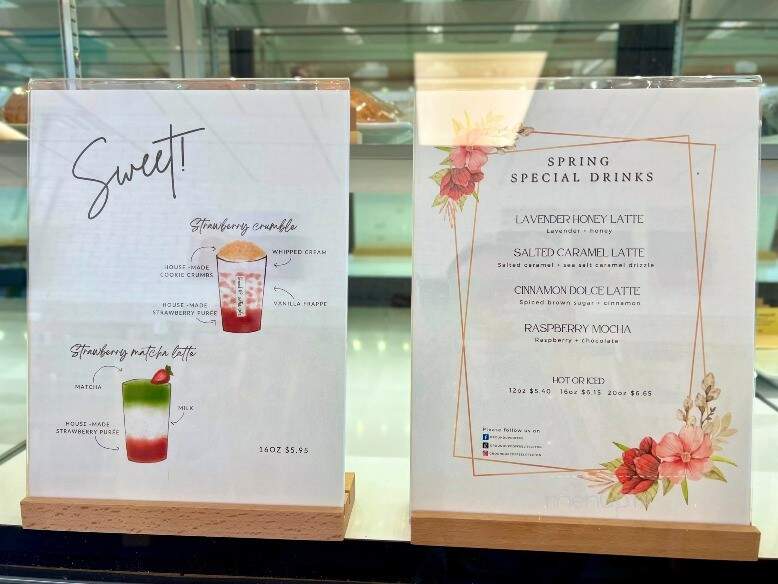 Sweet!
Strawberry crumble
WHIPPED CREAM
HOUSE -MADE
COOKIE CRUMBS
HOUSE -MADE
STRAWBERRY PURÉE
VANILLA FRAPPE
Strawberry matcha latte
MATCHA
MILK
HOUSE -MADE
STRAWBERRY PURÉE
16OZ $5.95
SPRING
SPECIAL DRINKS
LAVENDER HONEY LATTE
Lavender + honey
SALTED CARAMEL LATTE
Salted caramel + sea salt caramel drizzle
CINNAMON DOLCE LATTE
Spiced brown sugar + cinnamon
RASPBERRY MOCHA
Raspberry + chocolate
HOT OR ICED
12oz $5.40 16oz $6.15 20oz $6.65
Please follow us on